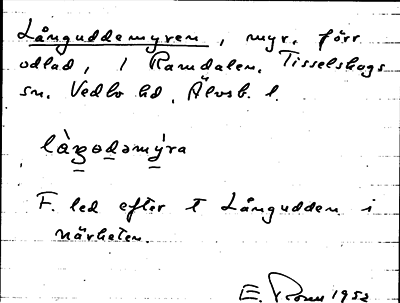 Långuddemyren, myr. förr
odlad, i Ramdalen. Tisselskogs
sn. Vedbo hd. Älvsb. l.
làgodəmýra
F. led efter t Långudden i
närheten.
E. 1952